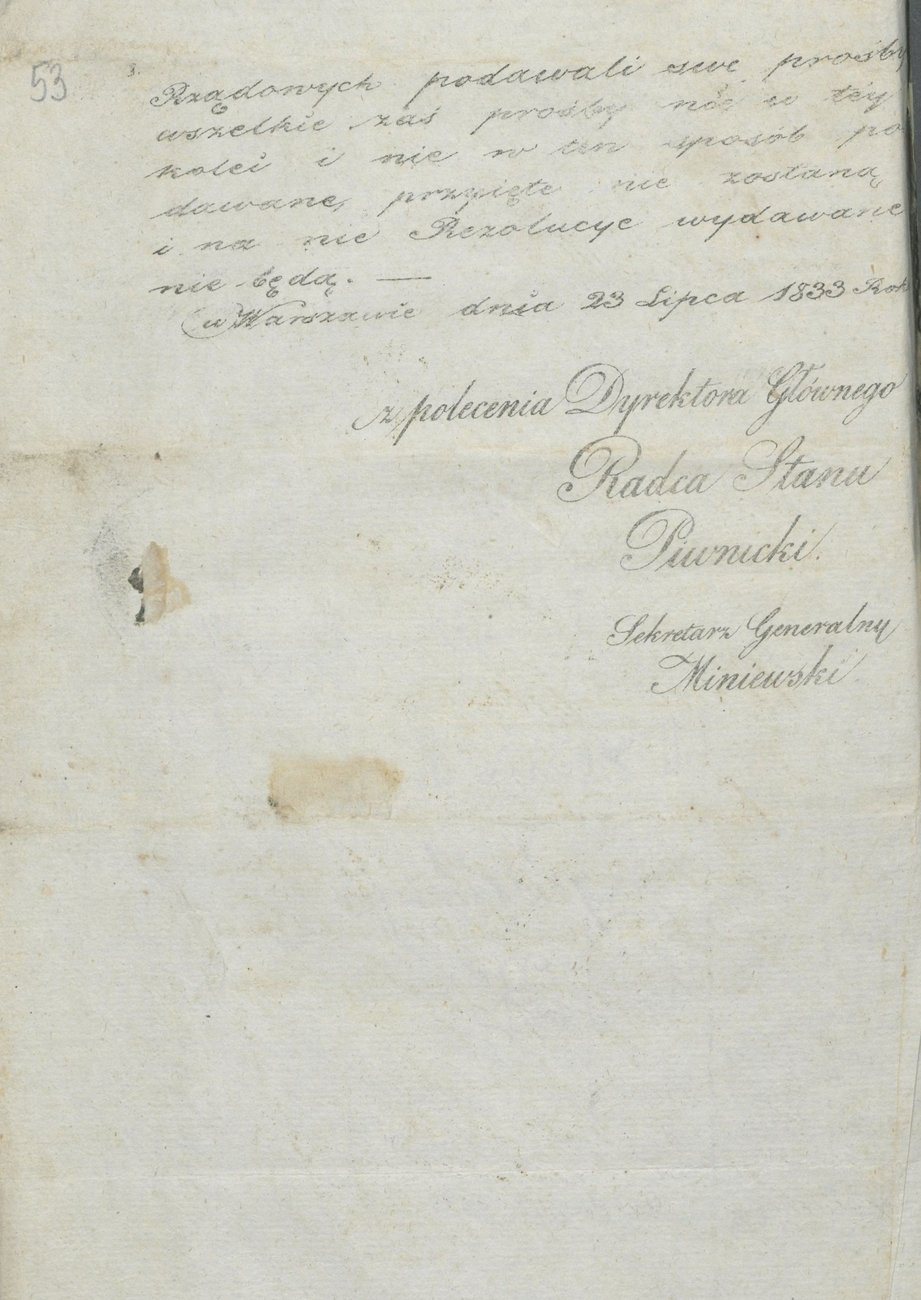 53
Rządowych podawali swe prośby
wszelkie zaś prośby nie w téy
kolei i nie w ten sposób po
dawane, przyięte nie zostaną
i na nie Rezolucye wydawane
nie będą. —
w Warszawie dnia 23 Lipca 1833 Rok
z polecenia Dyrektora Głównego
Radca Stanu
Piwnicki.
Sekretarz Generalny
Miniewski.